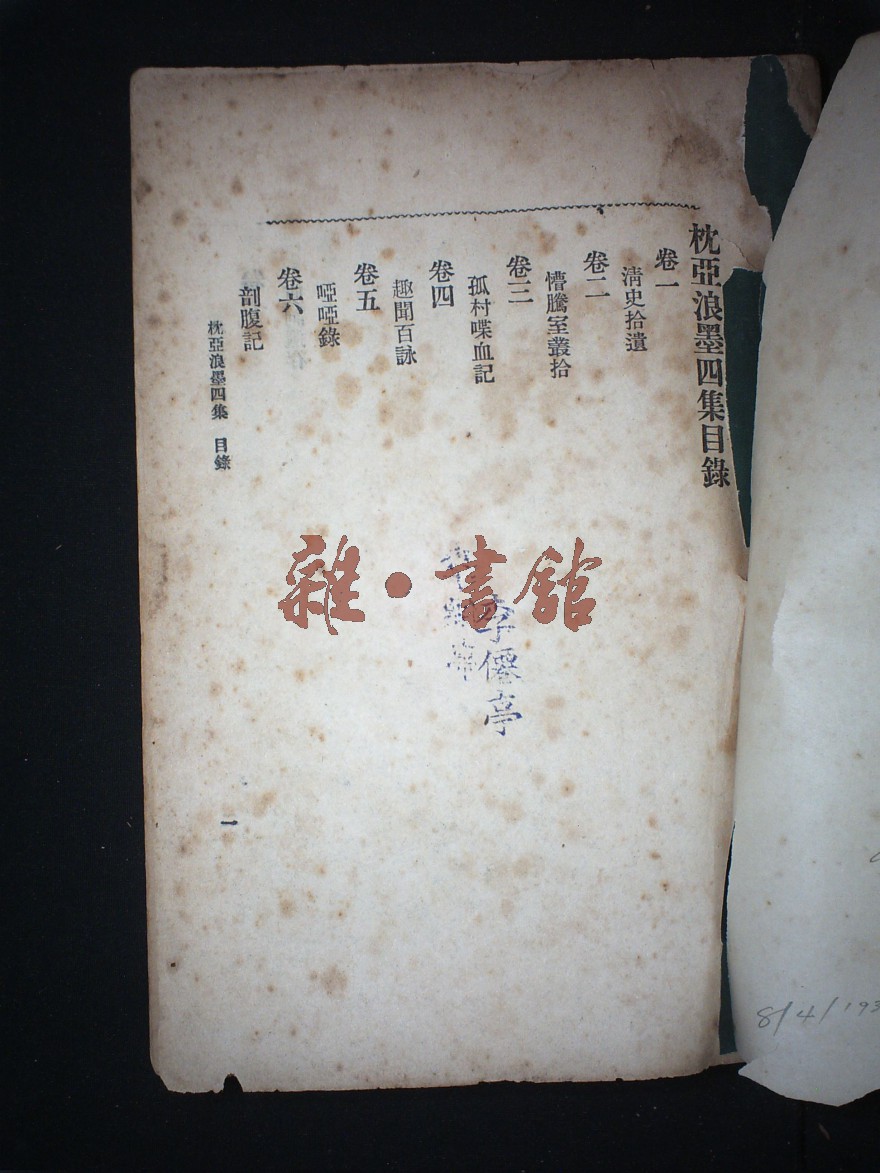 枕亞浪墨四集目錄
卷一
淸史拾遺
卷二
懵騰室叢拾
卷三
孤村喋血記
卷四
趣聞百詠
卷五
啞啞錄
卷六
剖腹記
枕亞浪墨四集 目錄
一
雜·書館
李僊亭
8/4/193